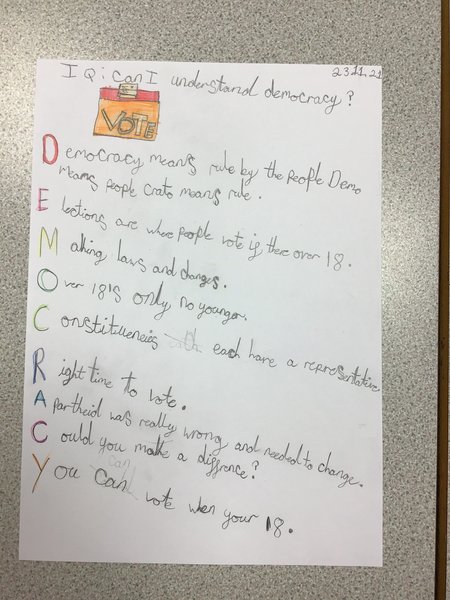 23.11.21
I Q: can I understand democracy?
VOTE
Democracy means rule by the people Demo
means people crato means rule.
Elections are where people vote if there over 18.
Making laws and changes.
Over 18's only no younger.
Constituencies each have a representative
Right time to vote.
Apartheid was really wrong and needed to change.
Could you make a diffrence?
can
You can vote when your 18.